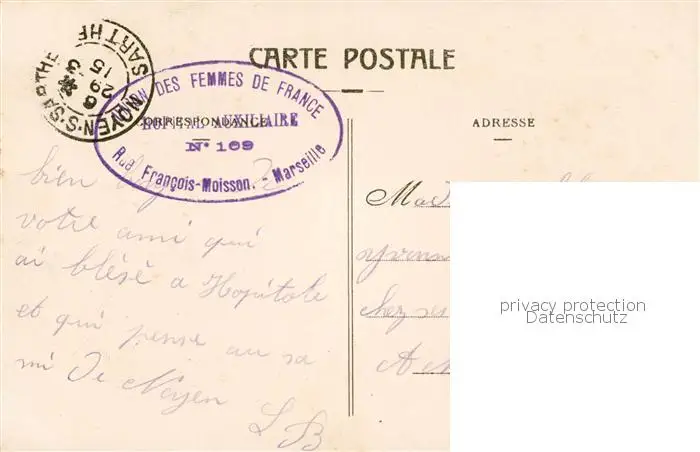 CARTE POSTALE
NOYEN-S-SARTHE
SARTHE
6
29-3
15
UNION DES FEMMES DE FRANCE
HOPITAL AUXILIAIRE
N° 109
Rue François-Moisson. - Marseille
CORRESPONDANCE
ADRESSE
bien
votre ami qui
ai blésé a Hopitale
et qui pense au sa
mi De Noyen
L B
chez ses
A
privacy protection
Datenschutz